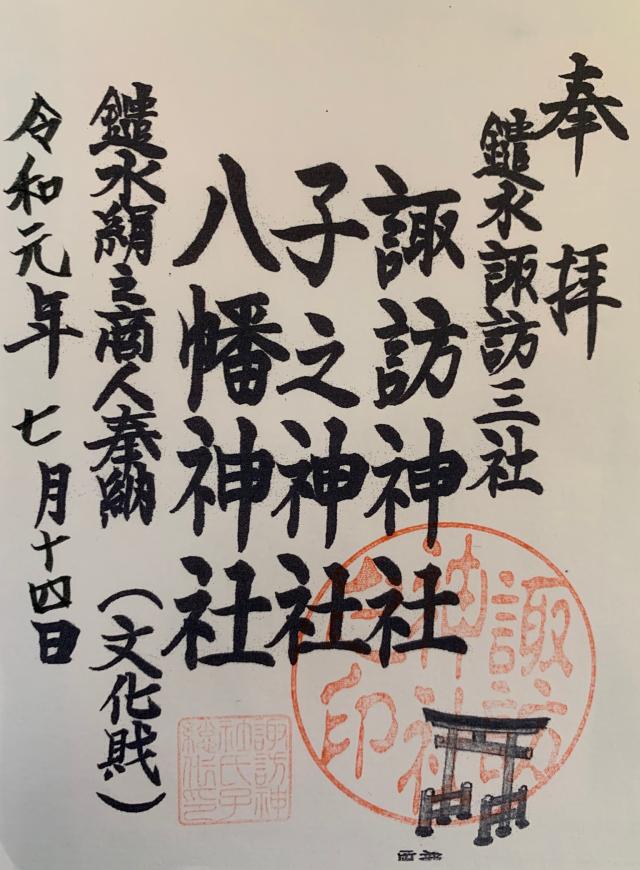 奉拝
鑓水諏訪三社
諏訪神社
子之神社
八幡神社
鑓水絹之商人奉納（文化財）
令和元年七月十四日
諏訪
神社
印
諏訪神
社氏子